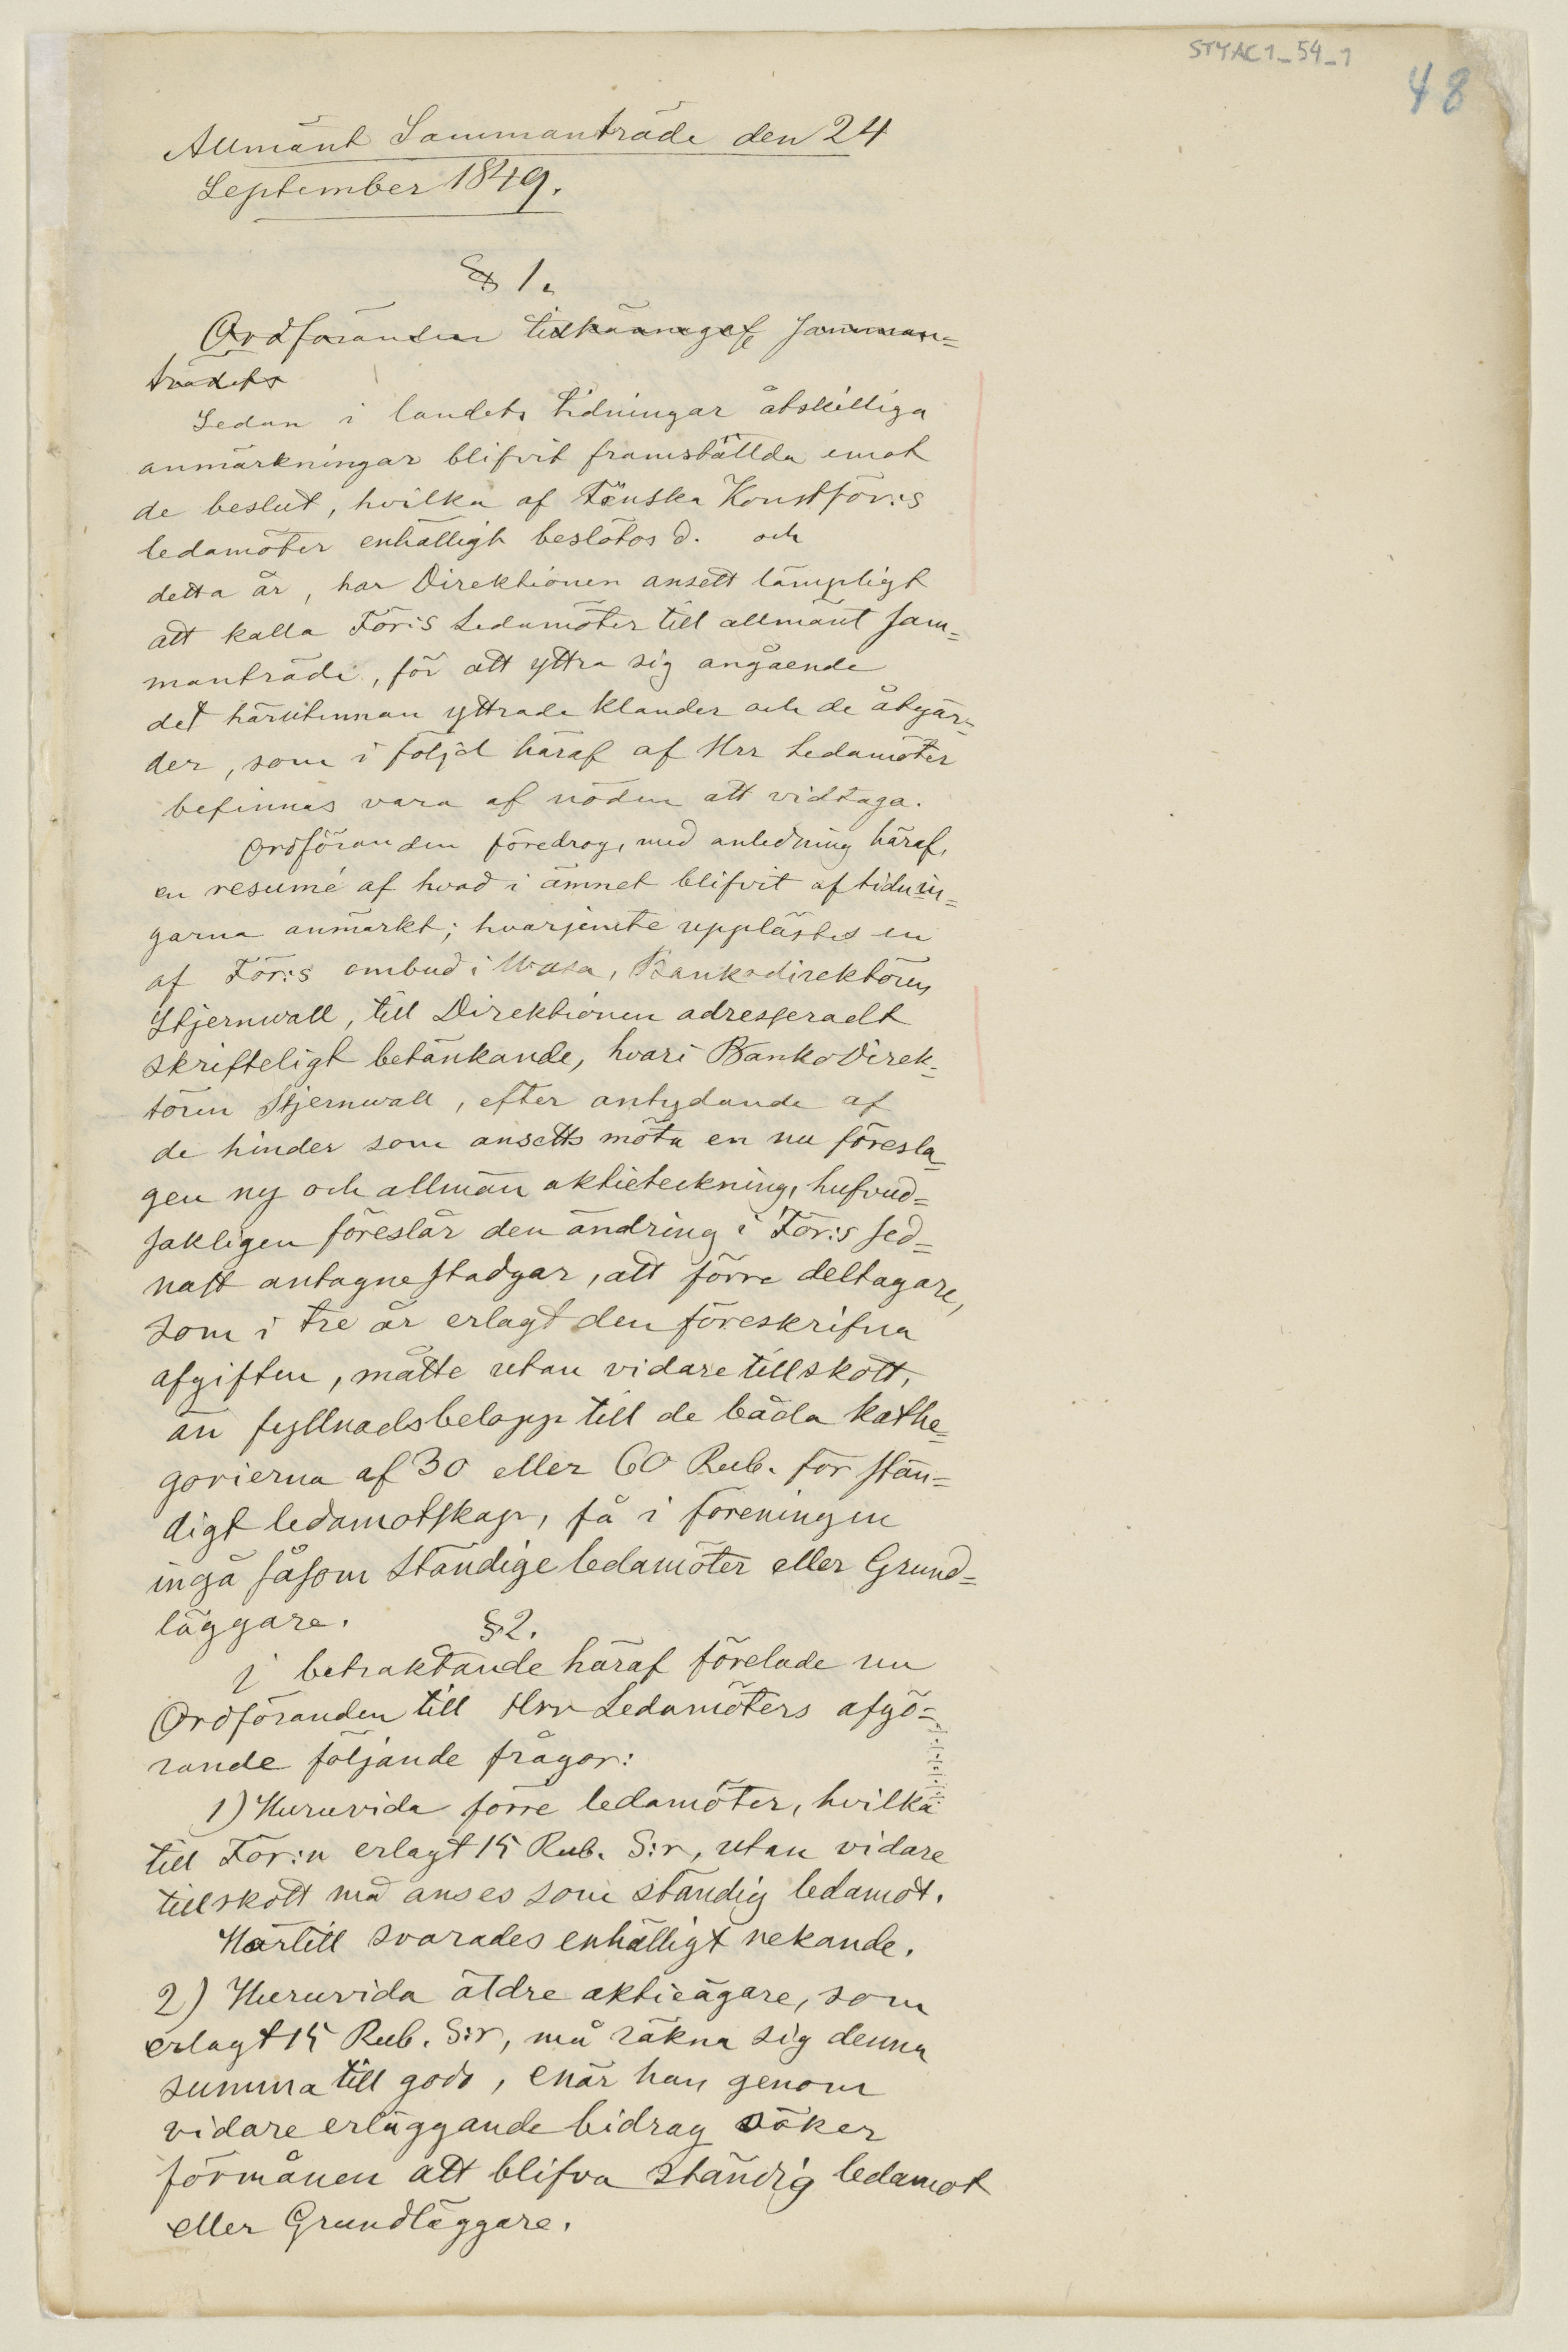 STYAC1_54_1
48
Allmänt Sammanträde den 24
September 1849.
§ 1.
Ordföranden tillkännagaf samman=
trädets
Sedan i landets tidningar åtskilliga
anmärkningar blifvit framställda emot
de beslut, hvilka af Finska Konstför:s
ledamöter enhälligt beslötos d. och
detta år, har Direktionen ansett lämpligt
att kalla För:s Ledamöter till allmänt sam=
manträde, för att yttra sig angående
det härutinnan yttrade klander och de åtgär=
der, som i följd häraf af Hrr Ledamöter
befinnas vara af nöden att vidtaga.
Ordföranden föredrog, med anledning häraf,
en resumé af hvad i ämnet blifvit af tidnin=
garna anmärkt; hvarjemte upplästes en
af För:s ombud i Wasa, Bankodirektören
Stjernwall, till Direktionen adresseradt
skrifteligt betänkande, hvari BankoDirek=
tören Stjernwall, efter antydande af
de hinder som ansetts möta en nu föresla=
gen ny och allmän aktieteckning, hufvud=
sakligen föreslår den ändring i För:s sed=
nast antagne stadgar, att förre deltagare,
som i tre år erlagt den föreskrifna
afgiften, måtte utan vidare tillskott,
än fyllnadsbelopp till de båda kathe=
gorierna af 30 eller 60 Rub. för stän=
digt ledamotskap, få i föreningen
ingå såsom ständige ledamöter eller Grund=
läggare.
§ 2.
I betraktande häraf förelade nu
Ordföranden till Hrr Ledamöters afgö=
rande följande frågor:
1) Huruvida förre ledamöter, hvilka
till För:n erlagt 15 Rub. S:r, utan vidare
tillskott må anses som ständig ledamot.
Härtill svarades enhälligt nekande.
2) Huruvida äldre aktieägare, som
erlagt 15 Rub. S:r, må räkna sig denna
summa till godo, enär han genom
vidare erläggande bidrag söker
förmånen att blifva ständig ledamot
eller Grundläggare.